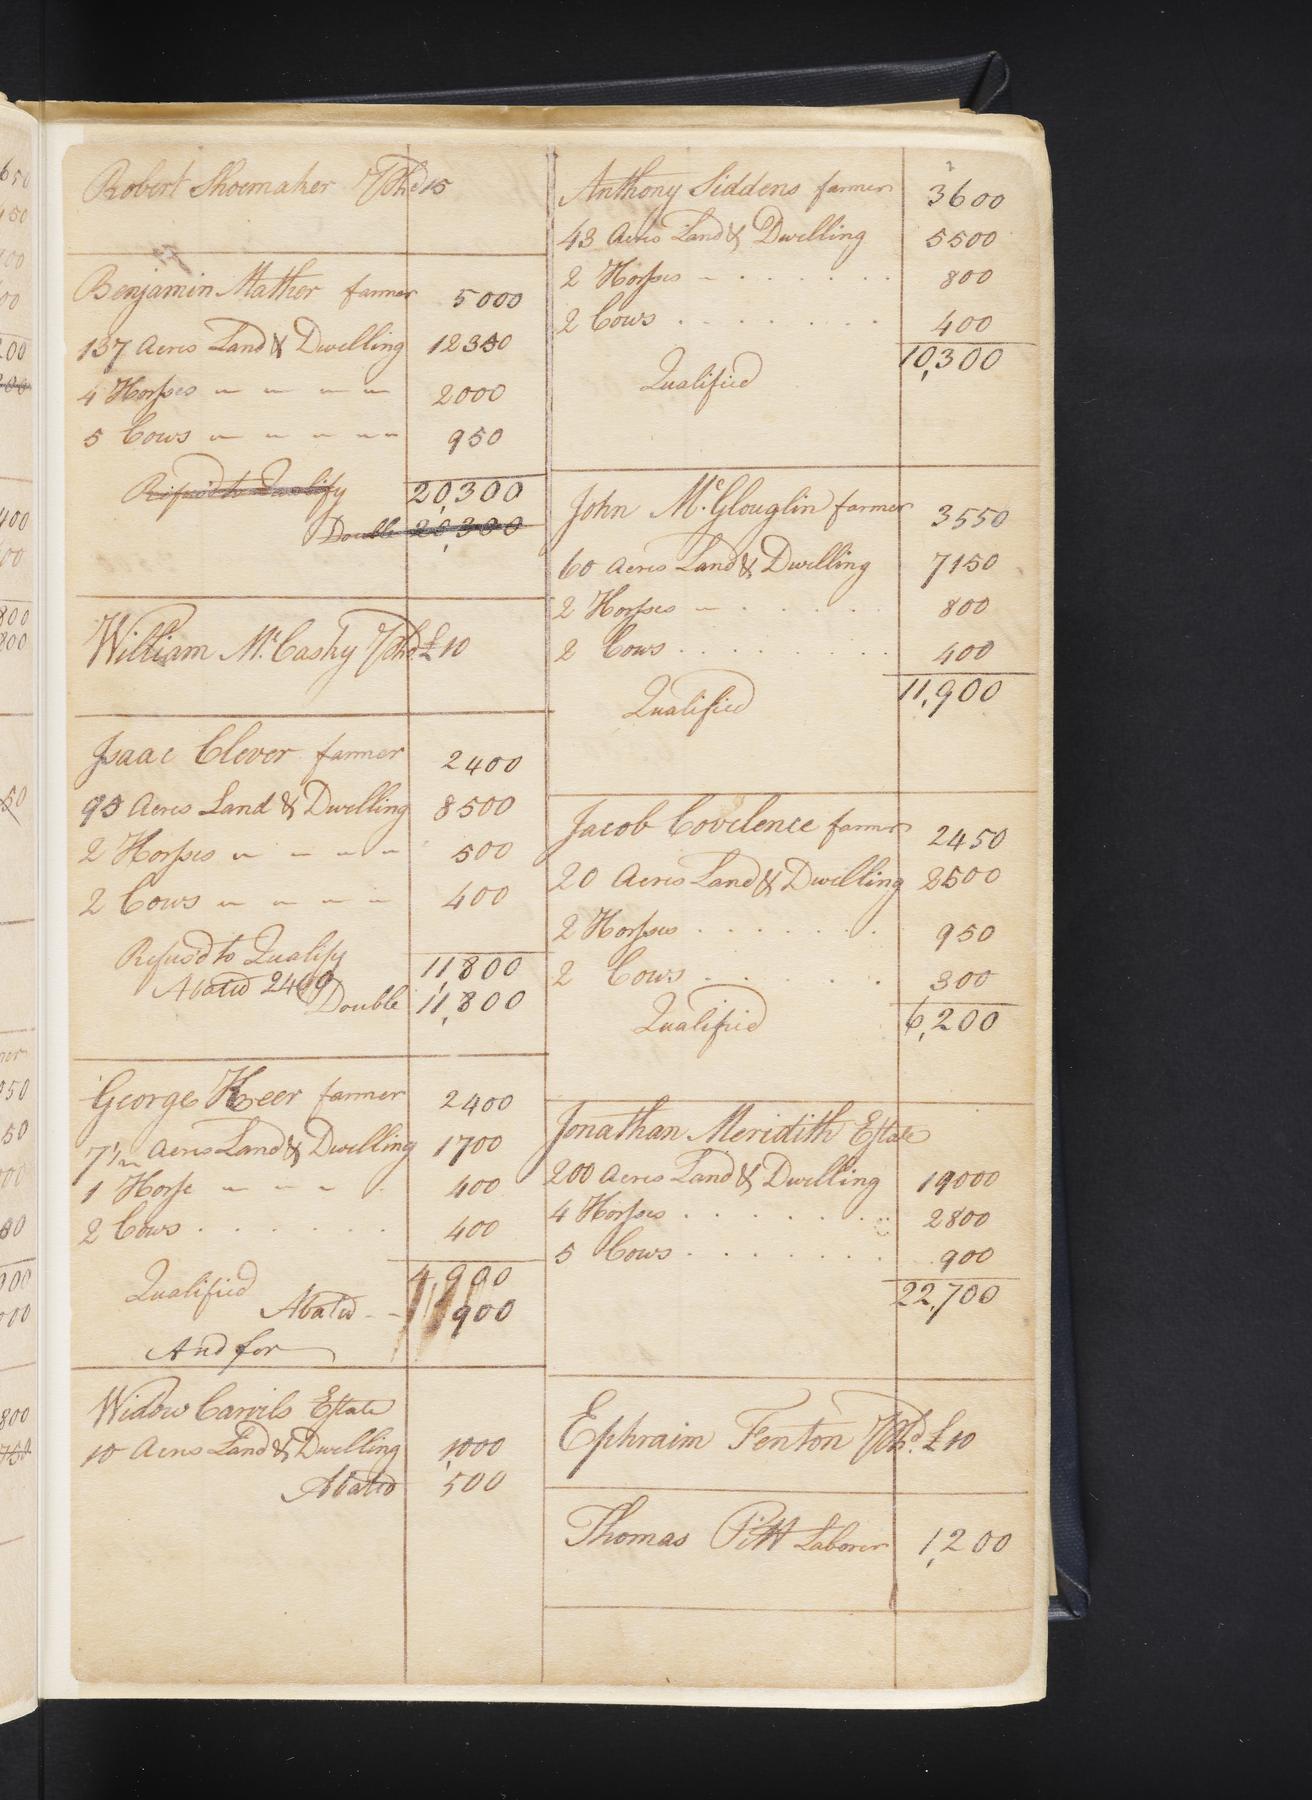 Robert Shoemaker 15
Benjamin Mather farmer 5000
137 Acres Land & Dwelling 12350
4 Horses 2000
5 Cows 950
Refusd to Qualify 20,300
Double 20,300
William Mc.Casky £10
Isaac Clever farmer 2400
95 Acres Land & Dwelling 8500
2 Horses 500
2 Cows 400
Refusd to Qualify 11,800
Abated 2400
Double 11,800
George Keer farmer 2400
7½ Acres Land & Dwelling 1700
1 Horse 400
2 Cows 400
Qualified 4,900
Abated 900
And for
Widow Carvils Estate
10 Acres Land & Dwelling 1,000
Abated 500
Anthony Siddens farmer 3600
43 Acres Land & Dwelling 5500
2 Horses 800
2 Cows 400
10,300
Qualified
John Mc.Glouglin farmer 3550
60 Acres Land & Dwelling 7150
2 Horses 800
2 Cows 400
11,900
Qualified
Jacob Covelence farmer 2450
20 Acres Land & Dwelling 2500
2 Horses 950
2 Cows 300
Qualified 6,200
Jonathan Meridith Estate
200 Acres Land & Dwelling 19000
4 Horses 2800
5 Cows 900
22,700
Ephraim Fenton £10
Thomas Pitt Laborer 1,200